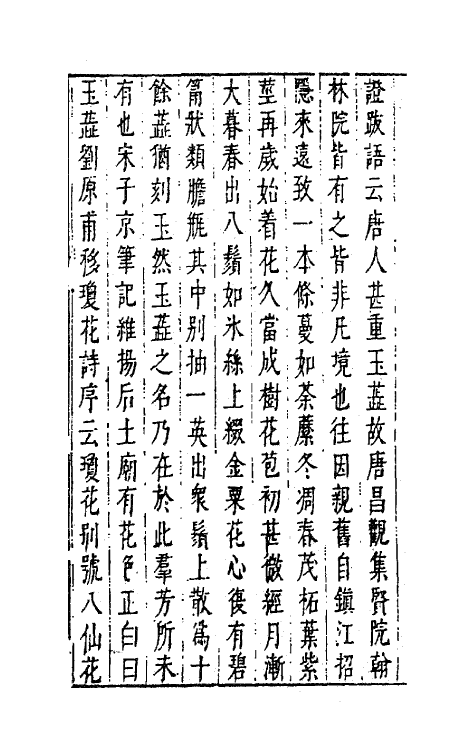 證跋語云唐人甚重玉蕋故唐昌觀集賢院翰
林院皆有之皆非凡境也往因親舊自鎮江招
隱來遠致一本條蔓如荼䕷冬凋春茂柘葉紫
莖再歲始着花久當成樹花苞初甚微經月漸
大暮春出八鬚如氷絲上綴金粟花心復有碧
筩狀類膽瓶其中别抽一英出衆鬚上散爲十
餘蕋猶刻玉然玉蕋之名乃在於此羣芳所未
有也宋子京筆記維揚后土廟有花色正白曰
玉蕋劉原甫移瓊花詩序云瓊花别號八仙花